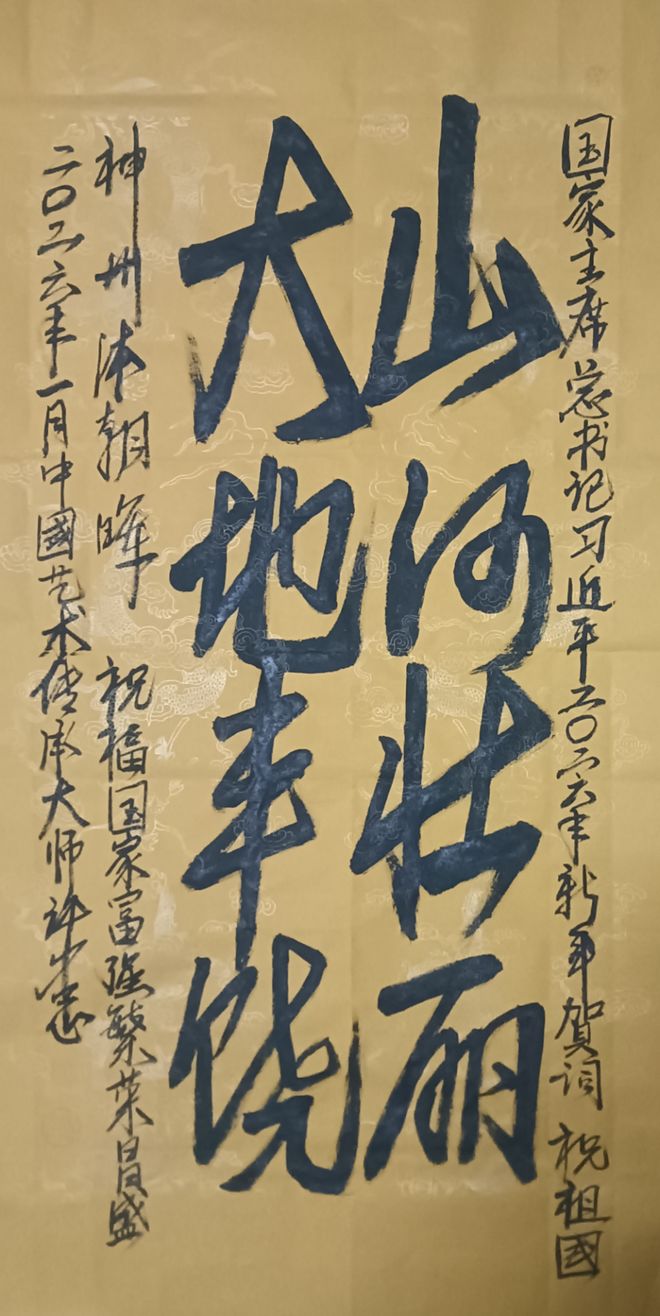 国家主席总书记习近平二〇二六年新年贺词 祝祖國
山河壮丽
大地丰饶
神州沐朝晖 祝福国家富强繁荣昌盛
二〇二六年一月中國艺术传承大师许中忠